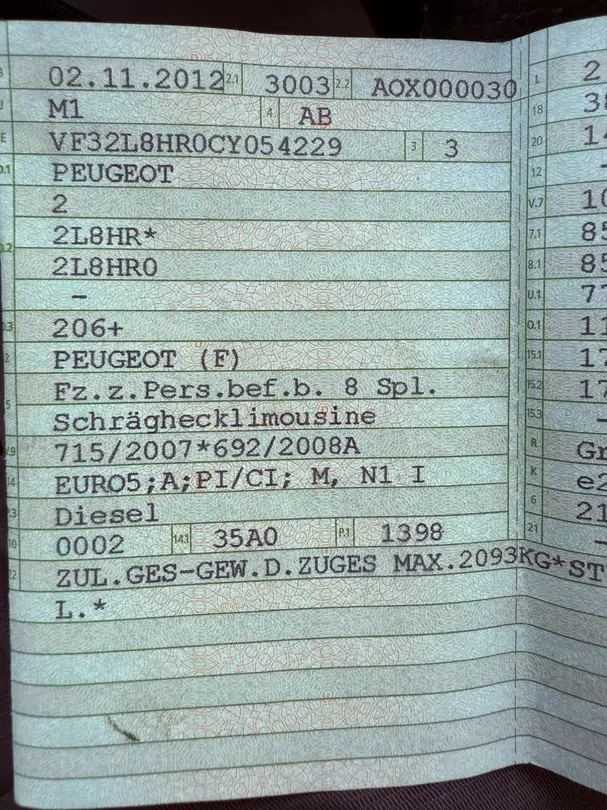 B 02.11.2012 2.1 3003 2.2 AOX000030 L 2
J M1 4 AB 18
E VF32L8HR0CY054229 3 3 20
PEUGEOT 12 -
2 V.7 10
2L8HR* 7.1 85
2L8HR0 8.1 85
- U.1 77
206+ O.1 11
PEUGEOT (F) 15.1 17
Fz.z.Pers.bef.b. 8 Spl. 15.2 17
5 Schräghecklimousine 15.3 -
715/2007*692/2008A R Gr
14 EURO5;A;PI/CI; M, N1 I K e2
Diesel 6 21
10 0002 14.1 35A0 P.1 1398 21 -
22 ZUL.GES-GEW.D.ZUGES MAX.2093KG*ST
L.*